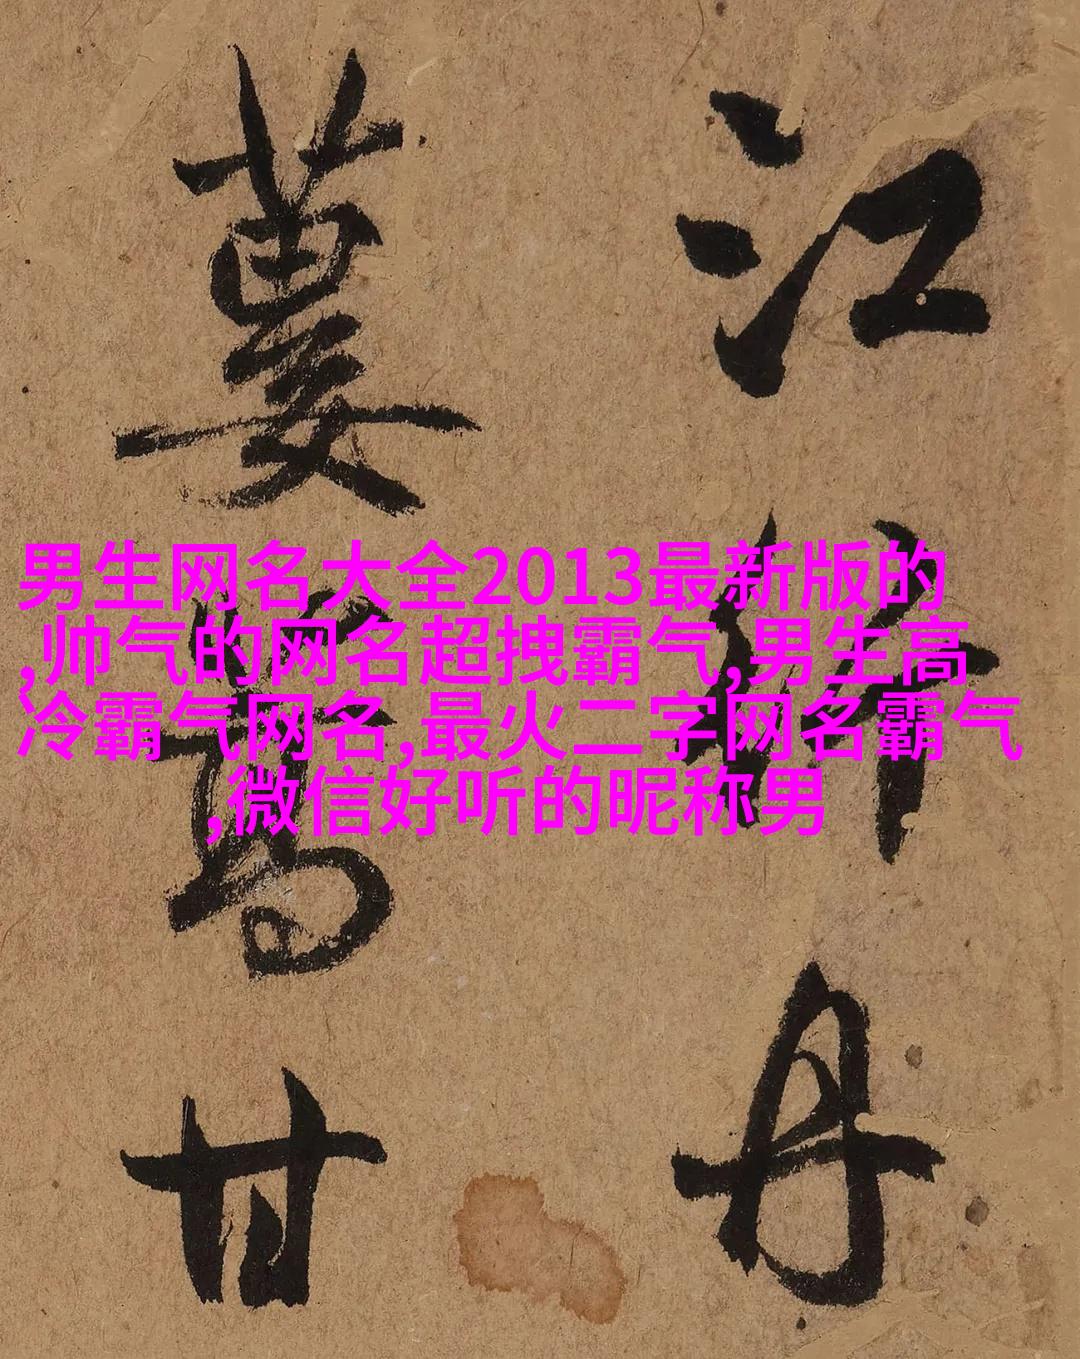 江丹
蔞蒿甘
男生网名大全2013最新版的
,帅气的网名超拽霸气,男生高
冷霸气网名,最火二字网名霸气
,微信好听的昵称男